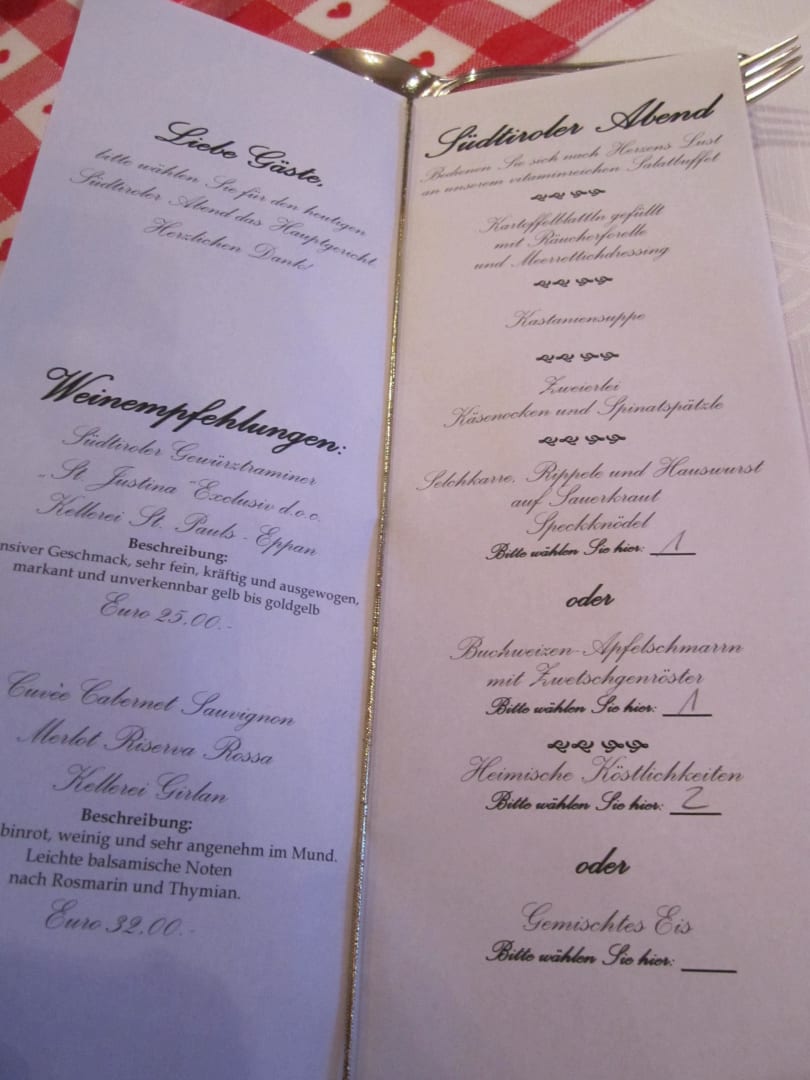 Liebe Gäste,
bitte wählen Sie für den heutigen
Südtiroler Abend das Hauptgericht.
Herzlichen Dank!
Weinempfehlungen:
Südtiroler Gewürztraminer
„St. Justina "Exclusiv d.o.c.
Kellerei St. Pauls - Eppan
Beschreibung:
nsiver Geschmack, sehr fein, kräftig und ausgewogen,
markant und unverkennbar gelb bis goldgelb
Euro 25,00.-
Cuvèe Cabernet Sauvignon
Merlot Riserva Rossa
Kellerei Girlan
Beschreibung:
binrot, weinig und sehr angenehm im Mund.
Leichte balsamische Noten
nach Rosmarin und Thymian.
Euro 32,00.-
Südtiroler Abend
Bedienen Sie sich nach Herzens Lust
an unserem vitaminreichen Salatbuffet
Kartoffelblattln gefüllt
mit Räucherforelle
und Meerrettichdressing
Kastaniensuppe
Zweierlei
Käsenocken und Spinatspätzle
Selchkarre, Rippele und Hauswurst
auf Sauerkraut
Speckknödel
Bitte wählen Sie hier: 1
oder
Buchweizen-Apfelschmarrn
mit Zwetschgenröster
Bitte wählen Sie hier: 1
Heimische Köstlichkeiten
Bitte wählen Sie hier: 2
oder
Gemischtes Eis
Bitte wählen Sie hier: